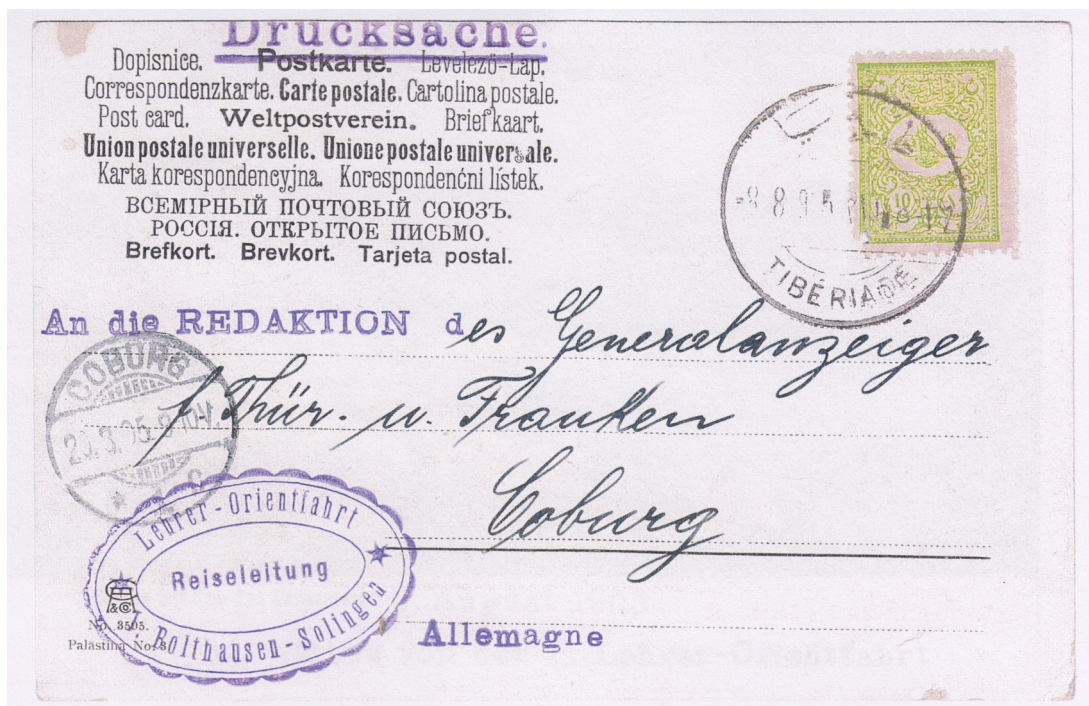 Drucksache.
Dopisnice. Postkarte. Levelező-Lap.
Correspondenzkarte. Carte postale. Cartolina postale.
Post card. Weltpostverein. Briefkaart.
Union postale universelle. Unione postale universale.
Karta korespondencyjna. Korespondenční lístek.
ВСЕМІРНЫЙ ПОЧТОВЫЙ СОЮЗЪ.
РОССІЯ. ОТКРЫТОЕ ПИСЬМО.
Brefkort. Brevkort. Tarjeta postal.
10
TIBÉRIADE
An die REDAKTION des Generalanzeiger
f. Thür. u. Franken
Coburg
COBURG
Lehrer-Orientfahrt
Reiseleitung
Bolthausen-Solingen
&C
No. 3505.
Palästina No. 8
Allemagne